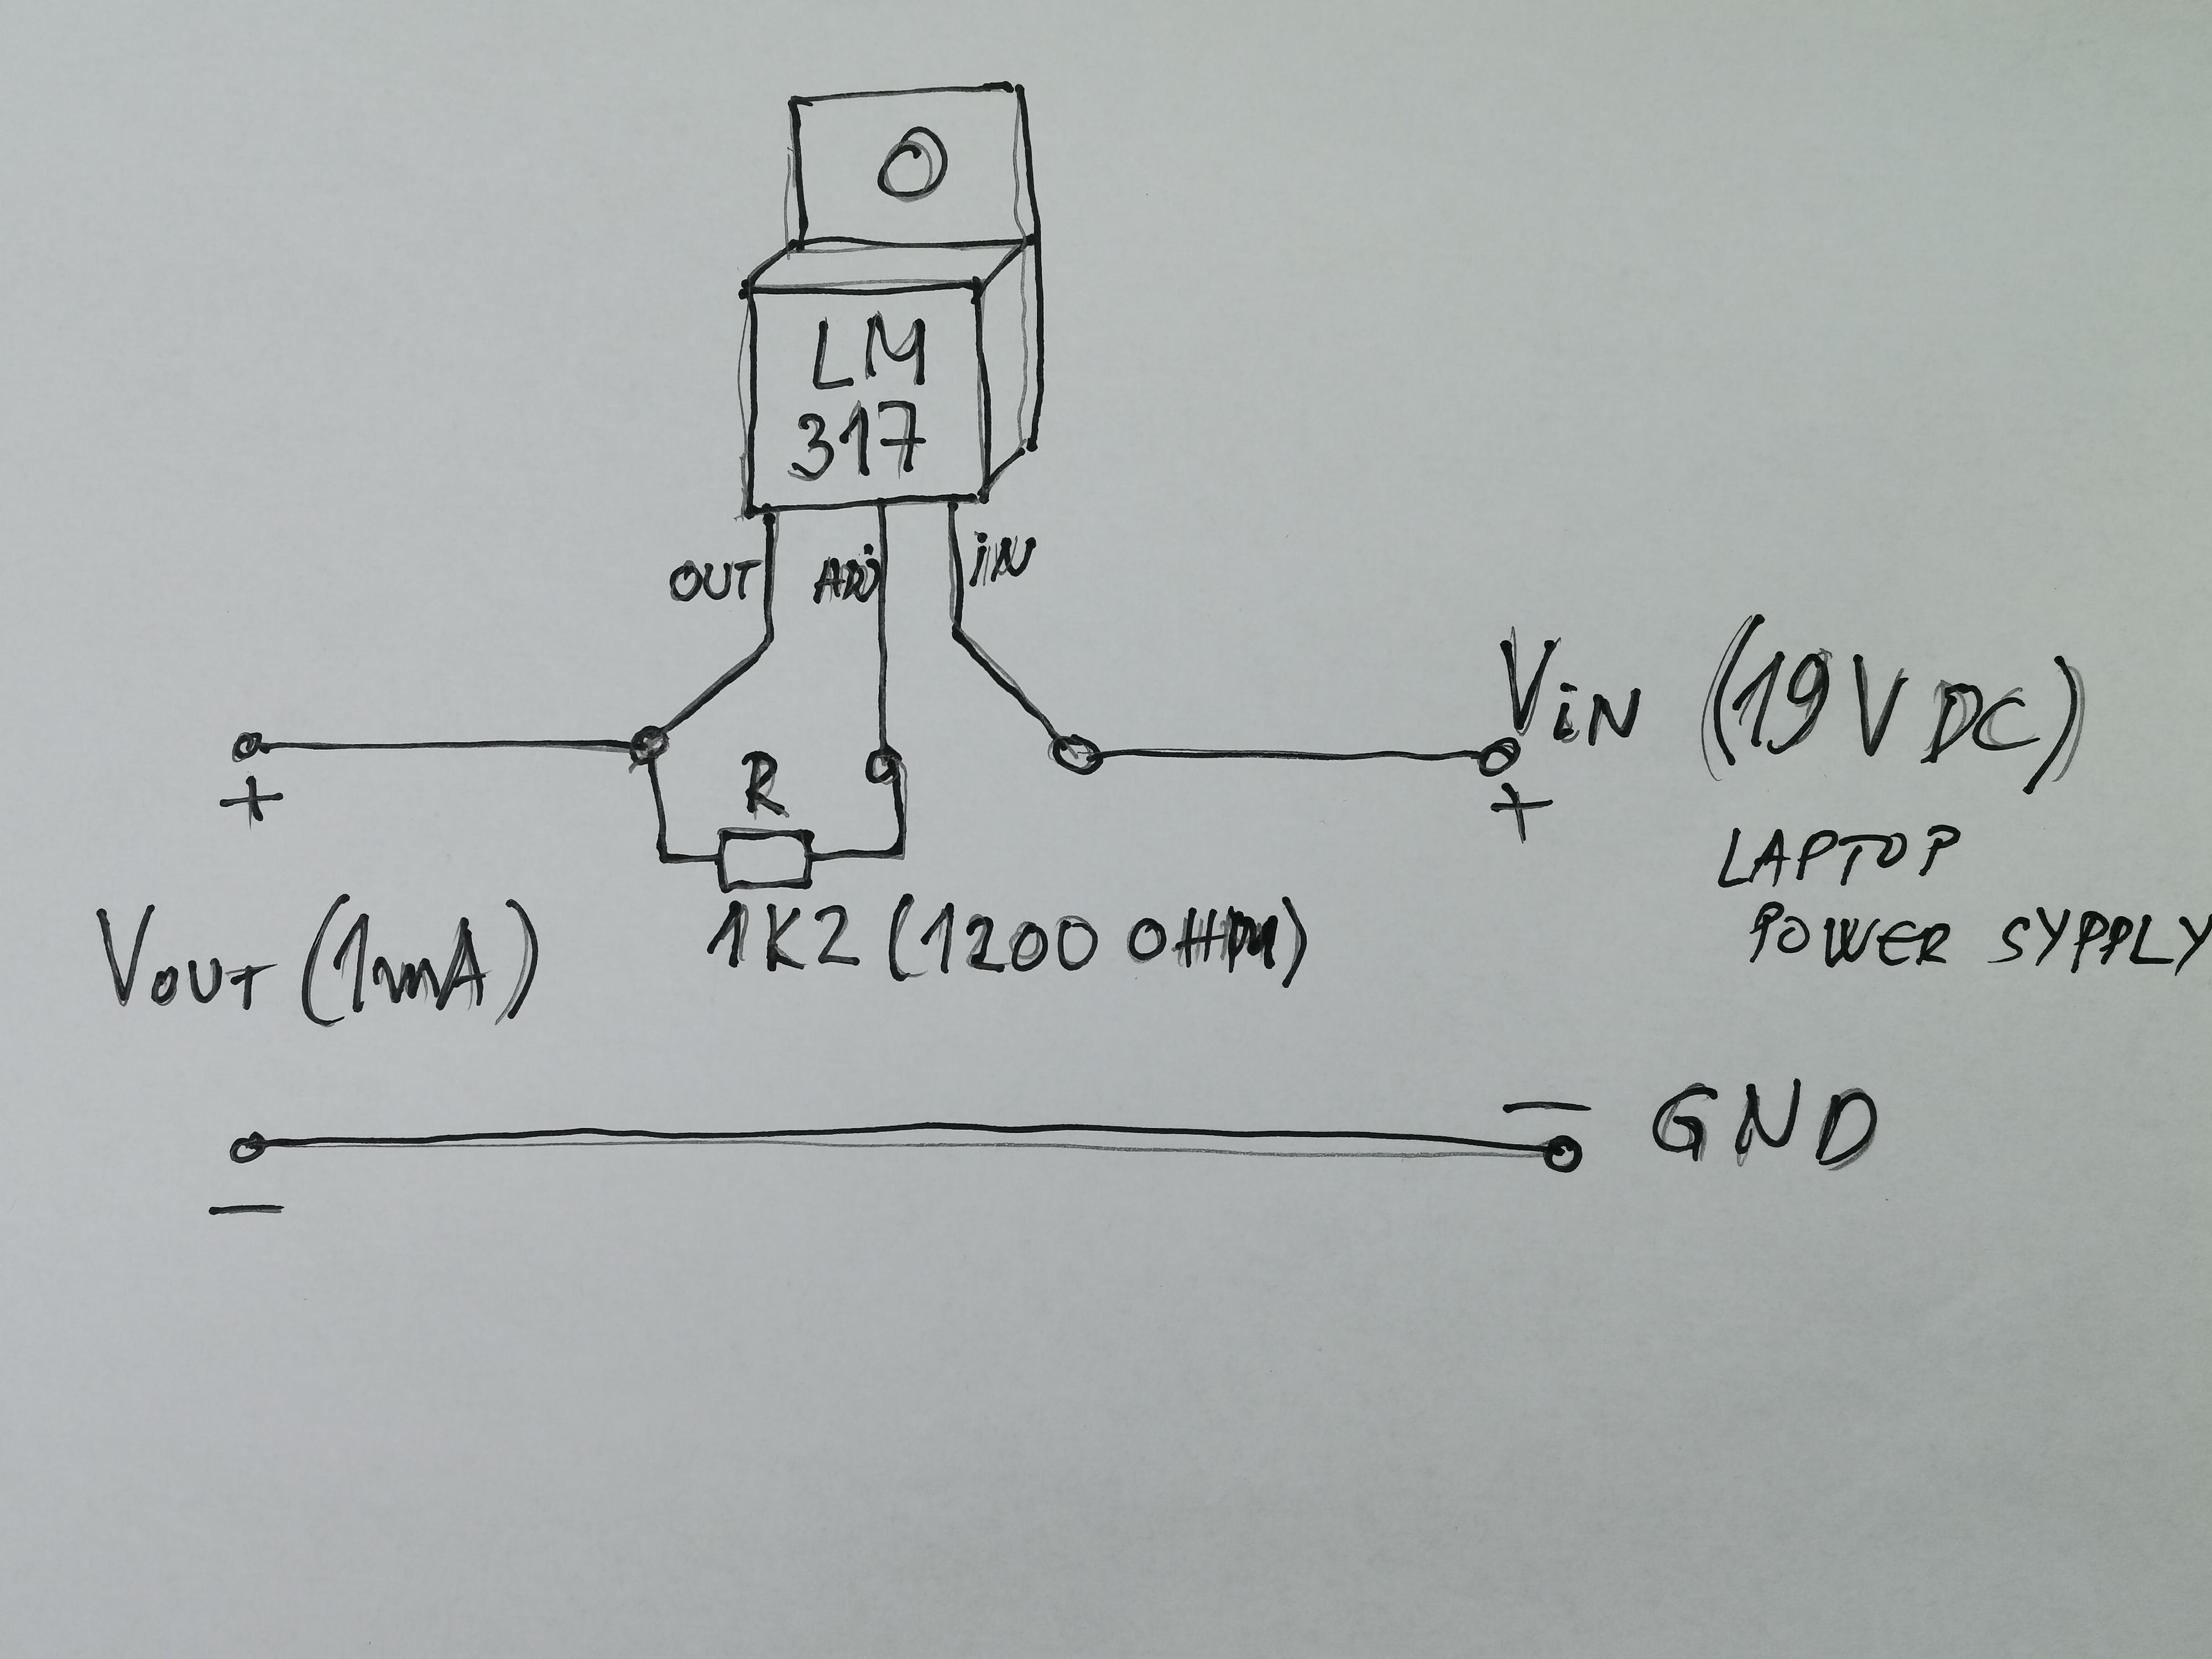 LM
317
OUT ADJ iN
ViN (19V DC)
+
+
R
LAPTOP
POWER SYPPLY
VOUT (1mA)
1K2 (1200 OHM)
— GND
—